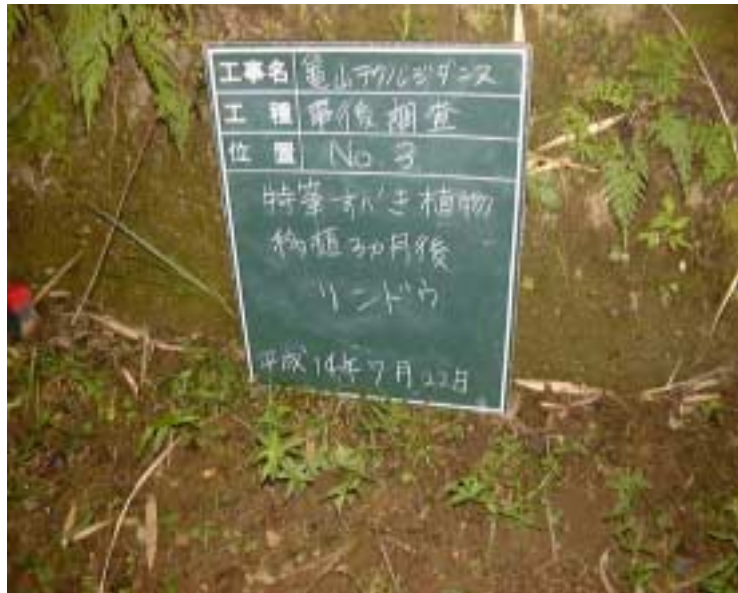 工事名 亀山テクノレジデンス
工種 事後調査
位置 No.3
特筆すべき植物
移植3ヵ月後
リンドウ
平成14年7月22日